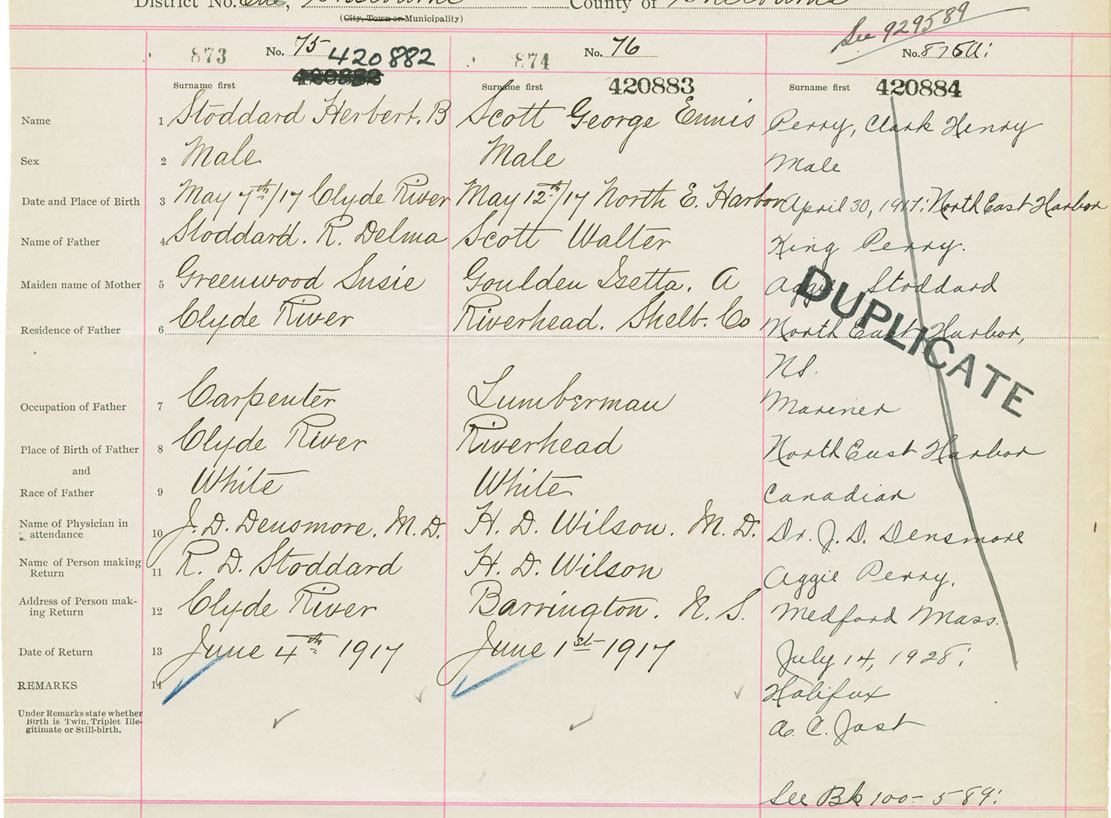 District No. One, Shelburne County of Shelburne
(City, Town or Municipality)
See 929589
873 No. 75 420882 874 No. 76 No.
420883 420884
Surname first Surname first Surname first
Name 1 Stoddard Herbert. B Scott George Ennis Perry, Clark Henry
Sex 2 Male Male Male
Date and Place of Birth 3 May 7th/17 Clyde River May 12th/17 North E. Harbor April 30, 1917: North East Harbor
Name of Father 4 Stoddard. R. Delma Scott Walter King Perry.
Maiden name of Mother 5 Greenwood Susie Goulden Izetta. A Aggie Stoddard
DUPLICATE
Residence of Father 6 Clyde River Riverhead. Shelb. Co North East Harbor,
NS.
Occupation of Father 7 Carpenter Lumberman Mariner
Place of Birth of Father 8 Clyde River Riverhead North East Harbor
and
Race of Father 9 White White Canadian
Name of Physician in attendance 10 J. D. Densmore. M. D. H. D. Wilson. M. D. Dr. J. D. Densmore
Name of Person making Return 11 R. D. Stoddard H. D. Wilson Aggie Perry.
Address of Person mak-ing Return 12 Clyde River Barrington. N. S. Medford Mass.
Date of Return 13 June 4th 1917 June 1st 1917 July 14, 1928:
REMARKS 14 Halifax
Under Remarks state whether
Birth is Twin, Triplet Ille-
gitimate or Still-birth.
A. C. Jost
See Bk 100 - 589: